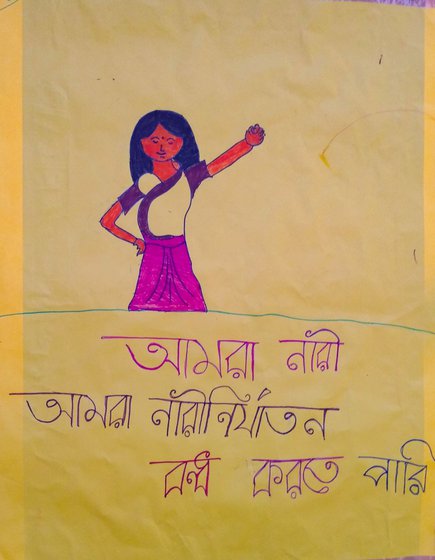 আমরা নারী
আমরা নারীনির্যাতন
বন্ধ করতে পারি